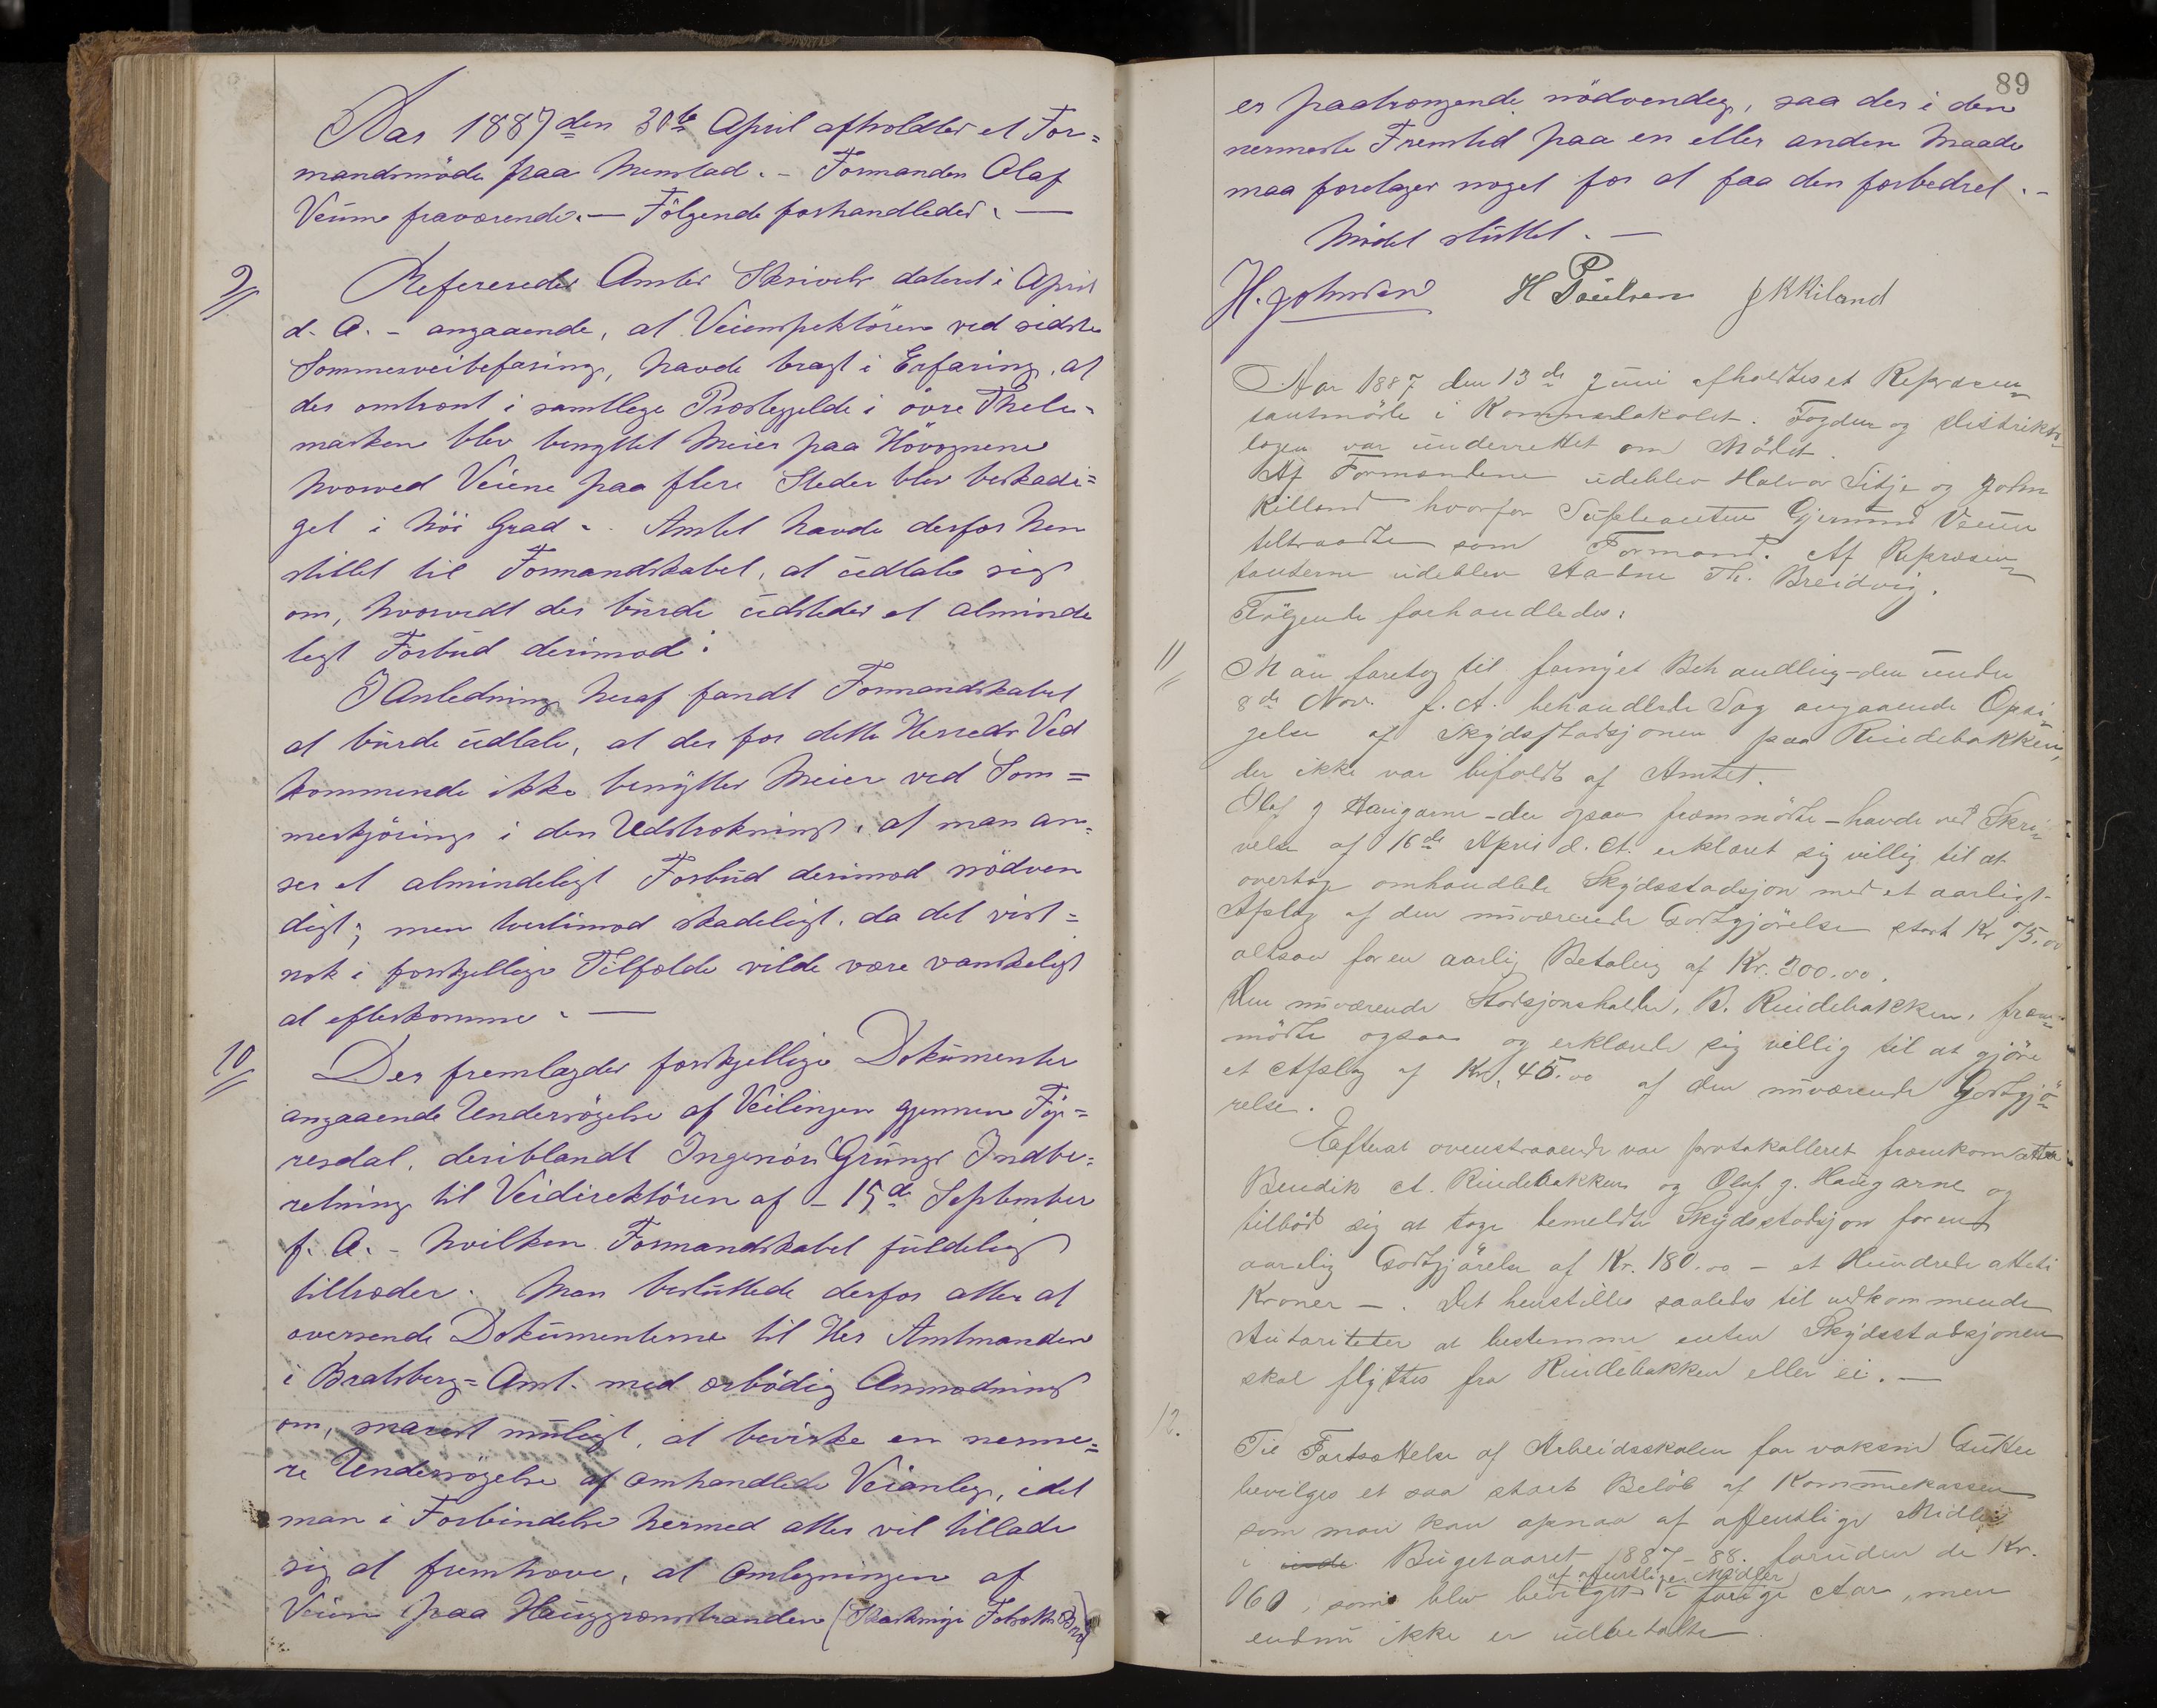 Aar 1887 den 30te April afholdtes et For=
mandsmöde paa Nemstad. – Formanden Olaf
Veum fraværende. — Fölgende forhandledes. —
9
Refereredes Amtets Skrivelse dateret i April
d. A. – angaaende, at Veiinspektören ved sidste
Sommerveibefaring, havde bragt i Erfaring, at
der omtrent i samtlige Præstegjelde i övre Thele-
marken blev benyttet Meier paa Hövognene
hvorved Veiene paa flere Steder blev beskadi=
get i höi Grad. Amtet havde derfor hen
stillet til Formandskabet, at udtale sig
om, hvorvidt der burde udstedes et alminde
ligt Forbud derimod.
I Anledning heraf fandt Formandskabet
at burde udtale, at der for dette Herreds Ved
kommende ikke benyttes Meier ved Som=
merkjöring i den Udstrækning, at man an-
ser et almindeligt Forbud derimod nödven
digt; men tvertimod skadeligt, da det vist=
nok i forskjellige Tilfælde vilde være vanskeligt
at efterkomme. —
10
Der fremlagdes forskjellige Dokumenter
angaaende Undersögelse af Veilinjen gjennem Fyr=
resdal, deriblandt Ingeniör Grungs Indbe=
retning til Veidirektören af – 15de September
f. A. – hvilken Formandskabet fuldelig
tiltræder. Man besluttede derfor atter at
oversende Dokumenterne til Her Amtmanden
i Bratsberg=Amt. med ærbödig Anmodning
om, snarest muligt, at bevirke en nerme=
re Undersögelse af omhandlede Veianleg, idet
man i Forbindelse hermed atter vil tillade
sig at fremhæve, at Omlegningen af
Veien paa Hauggrønstranden
89
er paatrængende nödvendig, saa der i den
nermeste Fremtid paa en eller anden Maade
maa foretages noget for at faa den forbedret. –
Mödet sluttet. —
H. Johnsen H Poulsen J K Kiland
Aar 1887 den 13de Juni afholdtes et Repræsen=
tantmöde i Kommunelokalet. Fogden og Distrikts=
lægen var underrettet om Mödet.
Af Formændene udeblev Halvor Litje og John
Killand hvorfor Supleanten Gjermund Veum
tiltraadte som Formand. Af Repræsen=
tanterne udeblev Aadne Th. Breidvig.
Fölgende forhandledes:
11
Man foretog til fornyet Behandling – den under
8de Nov. f. A. behandlede Sag angaaende Opsi=
gelse af Skydsstadsjonen paa Rindebakken,
der ikke var bifaldt af Amtet.
Olaf g Haugarne – der ogsaa fremmödte – havde ved Skri=
velse af 16de April d. A. erklæret sig villig til at
overtage omhandlede Skydsstadsjon med et aarligt
Afslag af den nuværende Godtgjörelse stort Kr 75.00
altsaa for en aarlig Betaling af Kr. 300.00.
Den nuværende Stadsjonsholder, B. Rindebakken, frem=
mödte ogsaa og erklærede sig villig til at gjöre
et Afslag af Kr. 45.00 af den nuværende Godtgjö=
relse.
Efterat ovenstaaende var protokolleret fremkom atter
Bendik A. Rindebakken og Olaf g. Haugarne og
tilböd sig at tage bemeldte Skydsstadsjon for en
aarlig Godtgjörelse af Kr. 180.00 – et Hundrede atteti
Kroner –. Det henstilles saaledes til vedkommende
Autoriteter at bestemme enten Skydsstadsjonen
skal flyttes fra Rindebakken eller ei. —
12.
Til Fortsættelse af Arbeidsskolen for voksne Gutter
bevilges et saa stort Belöb af Kommunekassen
som man kan opnaa af offentlige Midler
i Bugetaaret 1887–88. foruden de Kr.
af offentlige Midler
060, som blev bevilget i forige Aar, men
endnu ikke er udbetalte